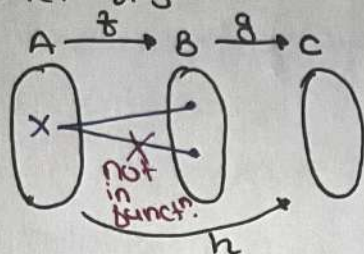 A f B g C
X
not
in
funct?
h